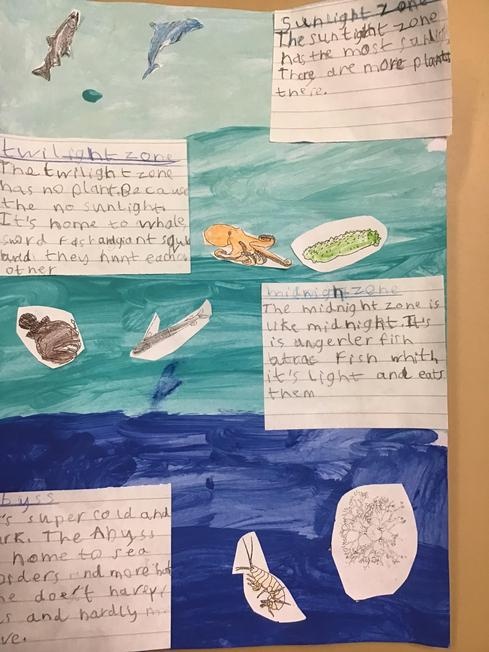 sunlight zone
The sunlight zone
has the most sunli
There are more plants
there.
twilight zone
The twilight zone
has no plant. Becaus
the no sunlight.
It's home to whale,
sword fish and giant squid
and they hunt each
other
midnigh zone
The midnight zone is
like midnight. It's
is angerler fish
fish whith
it's light and eats
them
byss
's super cold and
ark. The Abyss
home to sea
and more but
he does't
s and hardly
ve.